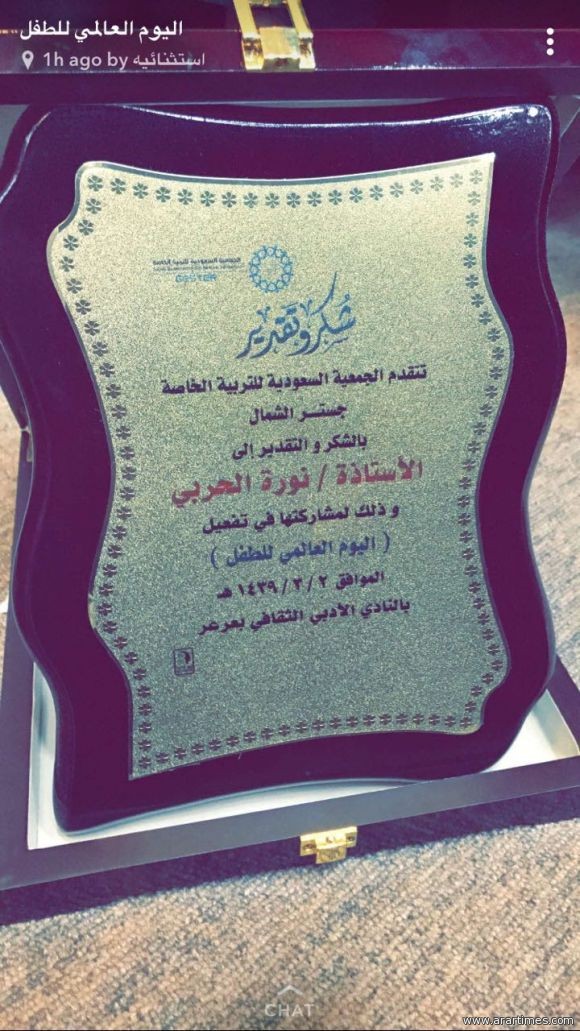 اليوم العالمي للطفل
1h ago by استثنائيه
الجمعية السعودية للتربية الخاصة
GESTER
شكر وتقدير
تتقدم الجمعية السعودية للتربية الخاصة
جستـر الشمال
بالشكر و التقدير إلى
الأستاذة / نورة الحربي
و ذلك لمشاركتها في تفعيل
( اليوم العالمي للطفل )
الموافق ٢ / ٣ / ١٤٣٩ هـ
بالنادي الأدبي الثقافي بعرعر
CHAT
www.arartimes.com